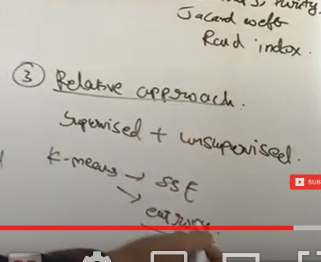 purity.
Jacard coeff
Rand index.
③ Relative approach.
Supervised + unsupervised.
K-means → SSE
→ entropy.
SUB